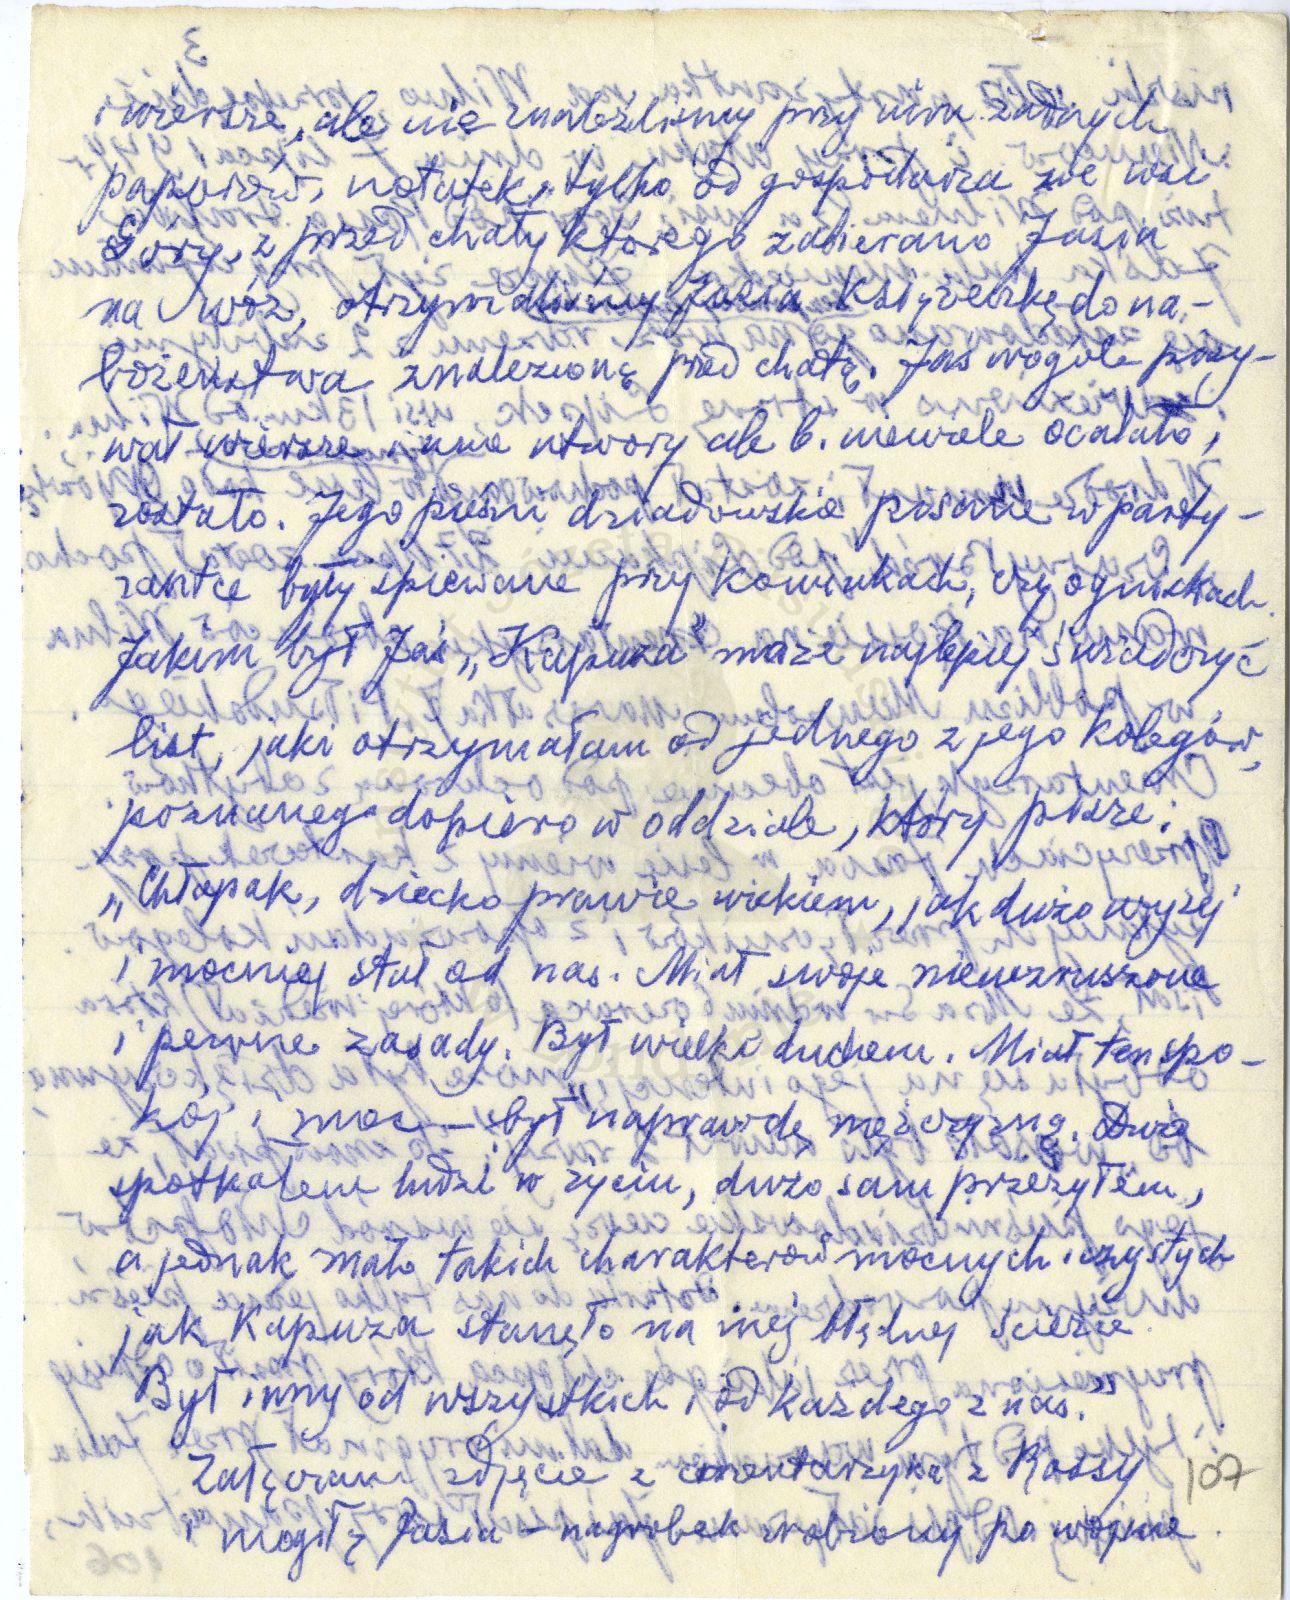 3
i wiersze, ale nie znaleźliśmy przy nim żadnych
papierów, notatek, tylko od gospodarza ze wsi
Góry, z przed chaty którego zabierano Jasia
na wóz, otrzymaliśmy Jasia Książeczkę do na-
bożeństwa znalezioną przed chatą. Jaś wogóle pisy-
wał wiersze i inne utwory ale b. niewiele ocalało,
zostało. Jego pieśni dziadowskie pisane w party-
zantce były śpiewane przy kominkach, czy ogniskach.
Jakim był Jaś „Kapuza" może najlepiej świadczyć
list, jaki otrzymałam od jednego z jego kolegów,
poznanego dopiero w oddziale, który pisze:
„Chłopak, dziecko prawie wiekiem, jak dużo wyżej
i mocniej stał od nas. Miał swoje niewzruszone
i pewne zasady. Był wielki duchem. Miał ten spo-
kój i moc — był naprawdę mężczyzną. Dużo
spotkałem ludzi w życiu, dużo sam przeżyłem,
a jednak mało takich charakterów mocnych i czystych
jak Kapuza stanęło na mej błędnej ścieżce.
Był inny od wszystkich i od każdego z nas."
Załączam zdjęcie z cmentarzyka z Rossy
107
i mogiłę Jasia – nagrobek zrobiony po wojnie.